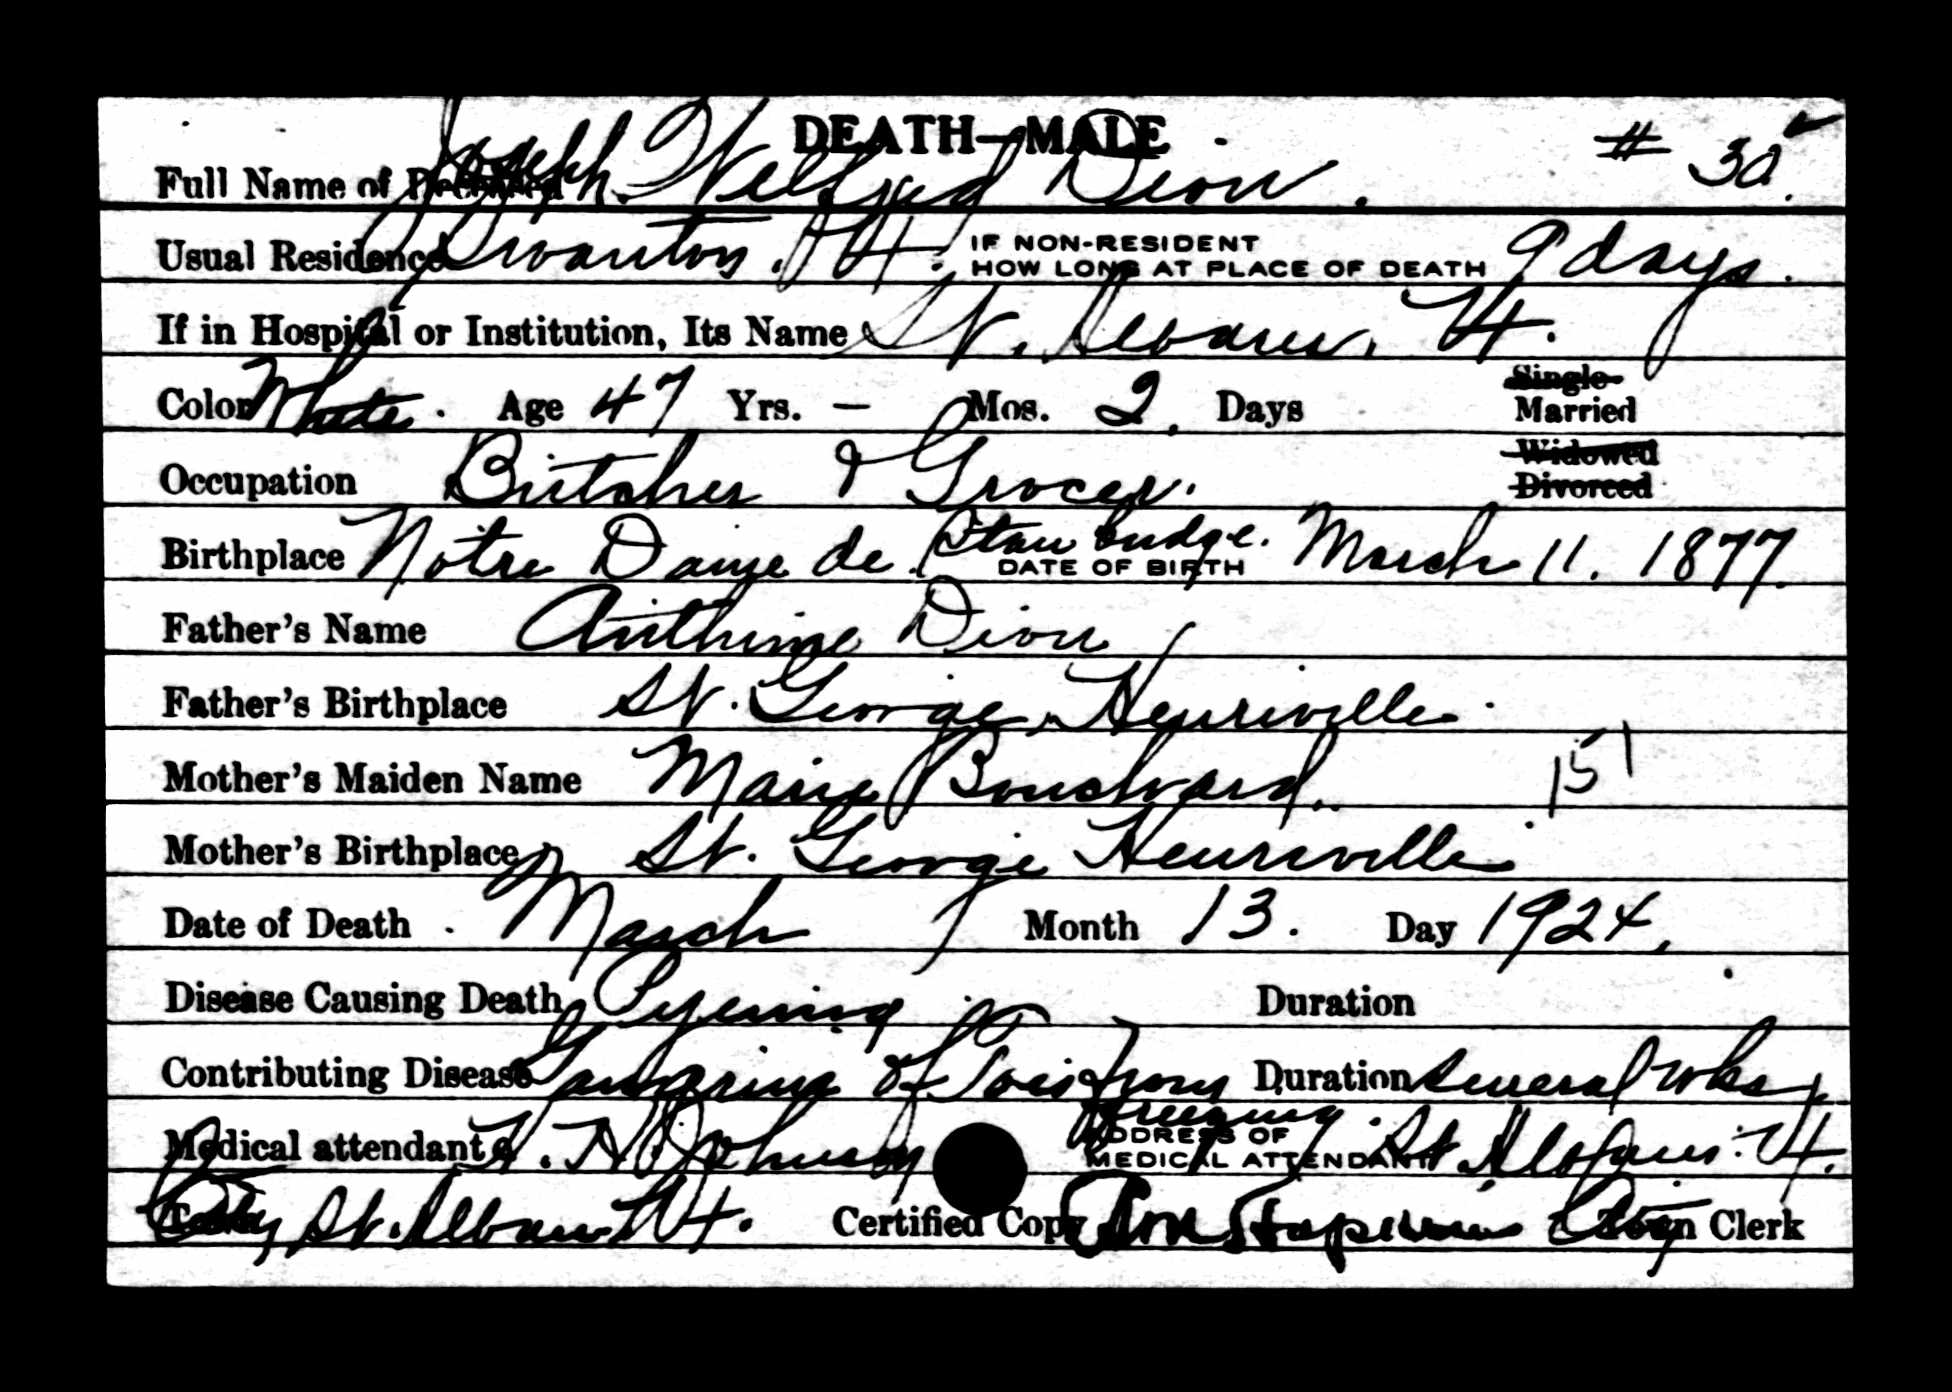 DEATH—MALE # 30.
Full Name of Deceased Joseph Wilfred Dion.
Usual Residence Swanton, Vt. IF NON-RESIDENT HOW LONG AT PLACE OF DEATH 9 days.
If in Hospital or Institution, Its Name St. Albans, Vt.
Color White. Age 47 Yrs. — Mos. 2. Days Single Married
Occupation Butcher & Grocer. Widowed Divorced
Birthplace Notre Dame de Stanbridge. DATE OF BIRTH March 11. 1877.
Father's Name Anthime Dion
Father's Birthplace St. George, Henriville.
Mother's Maiden Name Marie Bouchard. 151
Mother's Birthplace St. George Henriville
Date of Death March Month 13. Day 1924.
Disease Causing Death Pyemia Duration
Contributing Disease Gangrene of Toes from freezing. Duration several wks.
Medical attendant ADDRESS OF MEDICAL ATTENDANT St. Albans. Vt.
City St. Albans Vt. Certified Copy City Town Clerk